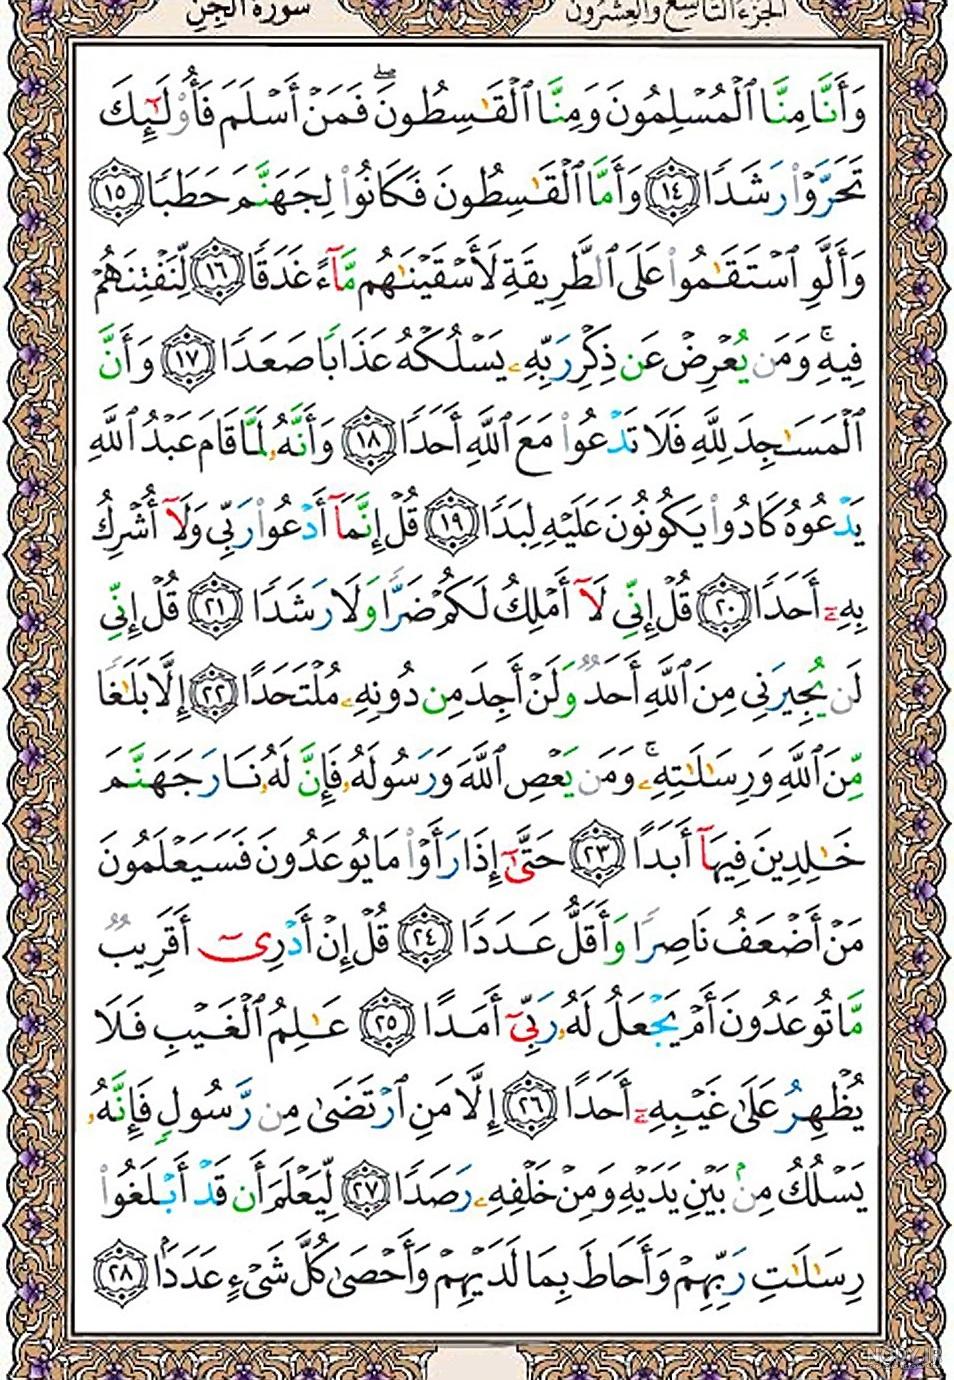 سورة الجن
الجزء التاسع والعشرون
وَأَنَّا مِنَّا ٱلْمُسْلِمُونَ وَمِنَّا ٱلْقَـٰسِطُونَ ۖ فَمَنْ أَسْلَمَ فَأُو۟لَـٰٓئِكَ
تَحَرَّوْا۟ رَشَدًا ١٤ وَأَمَّا ٱلْقَـٰسِطُونَ فَكَانُوا۟ لِجَهَنَّمَ حَطَبًا ١٥
وَأَلَّوِ ٱسْتَقَـٰمُوا۟ عَلَى ٱلطَّرِيقَةِ لَأَسْقَيْنَـٰهُم مَّآءً غَدَقًا ١٦ لِّنَفْتِنَهُمْ
فِيهِ ۚ وَمَن يُعْرِضْ عَن ذِكْرِ رَبِّهِۦ يَسْلُكْهُ عَذَابًا صَعَدًا ١٧ وَأَنَّ
ٱلْمَسَـٰجِدَ لِلَّهِ فَلَا تَدْعُوا۟ مَعَ ٱللَّهِ أَحَدًا ١٨ وَأَنَّهُۥ لَمَّا قَامَ عَبْدُ ٱللَّهِ
يَدْعُوهُ كَادُوا۟ يَكُونُونَ عَلَيْهِ لِبَدًا ١٩ قُلْ إِنَّمَآ أَدْعُوا۟ رَبِّى وَلَآ أُشْرِكُ
بِهِۦٓ أَحَدًا ٢٠ قُلْ إِنِّى لَآ أَمْلِكُ لَكُمْ ضَرًّا وَلَا رَشَدًا ٢١ قُلْ إِنِّى
لَن يُجِيرَنِى مِنَ ٱللَّهِ أَحَدٌ وَلَنْ أَجِدَ مِن دُونِهِۦ مُلْتَحَدًا ٢٢ إِلَّا بَلَـٰغًا
مِّنَ ٱللَّهِ وَرِسَـٰلَـٰتِهِۦ ۚ وَمَن يَعْصِ ٱللَّهَ وَرَسُولَهُۥ فَإِنَّ لَهُۥ نَارَ جَهَنَّمَ
خَـٰلِدِينَ فِيهَآ أَبَدًا ٢٣ حَتَّىٰٓ إِذَا رَأَوْا۟ مَا يُوعَدُونَ فَسَيَعْلَمُونَ
مَنْ أَضْعَفُ نَاصِرًا وَأَقَلُّ عَدَدًا ٢٤ قُلْ إِنْ أَدْرِىٓ أَقَرِيبٌ
مَّا تُوعَدُونَ أَمْ يَجْعَلُ لَهُۥ رَبِّىٓ أَمَدًا ٢٥ عَـٰلِمُ ٱلْغَيْبِ فَلَا
يُظْهِرُ عَلَىٰ غَيْبِهِۦٓ أَحَدًا ٢٦ إِلَّا مَنِ ٱرْتَضَىٰ مِن رَّسُولٍ فَإِنَّهُۥ
يَسْلُكُ مِنۢ بَيْنِ يَدَيْهِ وَمِنْ خَلْفِهِۦ رَصَدًا ٢٧ لِّيَعْلَمَ أَن قَدْ أَبْلَغُوا۟
رِسَـٰلَـٰتِ رَبِّهِمْ وَأَحَاطَ بِمَا لَدَيْهِمْ وَأَحْصَىٰ كُلَّ شَىْءٍ عَدَدًۢا ٢٨